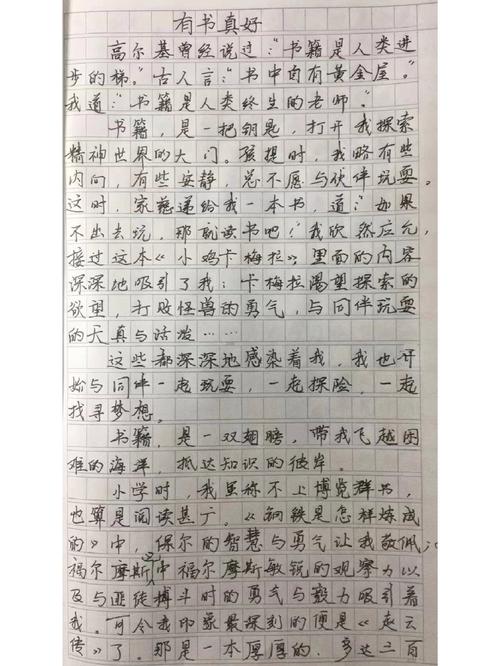 有书真好
高尔基曾经说过:"书籍是人类进
步的梯。"古人言:"书中自有黄金屋。"
我道:"书籍是人类终生的老师。"
书籍,是一把钥匙,打开我探索
精神世界的大门。孩提时,我略有些
内向,有些安静,总不愿与伙伴玩耍。
这时,家慈递给我一本书,道:"如果
不出去玩,那就读书吧!"我欣然应允,
接过这本《小鸡卡梅拉》里面的内容
深深地吸引了我:卡梅拉渴望探索的
欲望,打败怪兽的勇气,与同伴玩耍
的天真与活泼……
这些都深深地感染着我,我也开
始与同伴一起玩耍,一起探险,一起
找寻梦想。
书籍,是一双翅膀,带我飞越困
难的海洋,抵达知识的彼岸。
小学时,我虽称不上博览群书,
也算是阅读甚广。《钢铁是怎样炼成
的》中,保尔的智慧与勇气让我敬佩;
福尔摩斯中福尔摩斯敏锐的观察力以
及与匪徒搏斗时的勇气与毅力吸引着
我。可令我印象最深刻的便是《赵云
传》了。那是一本厚厚的,多达三百